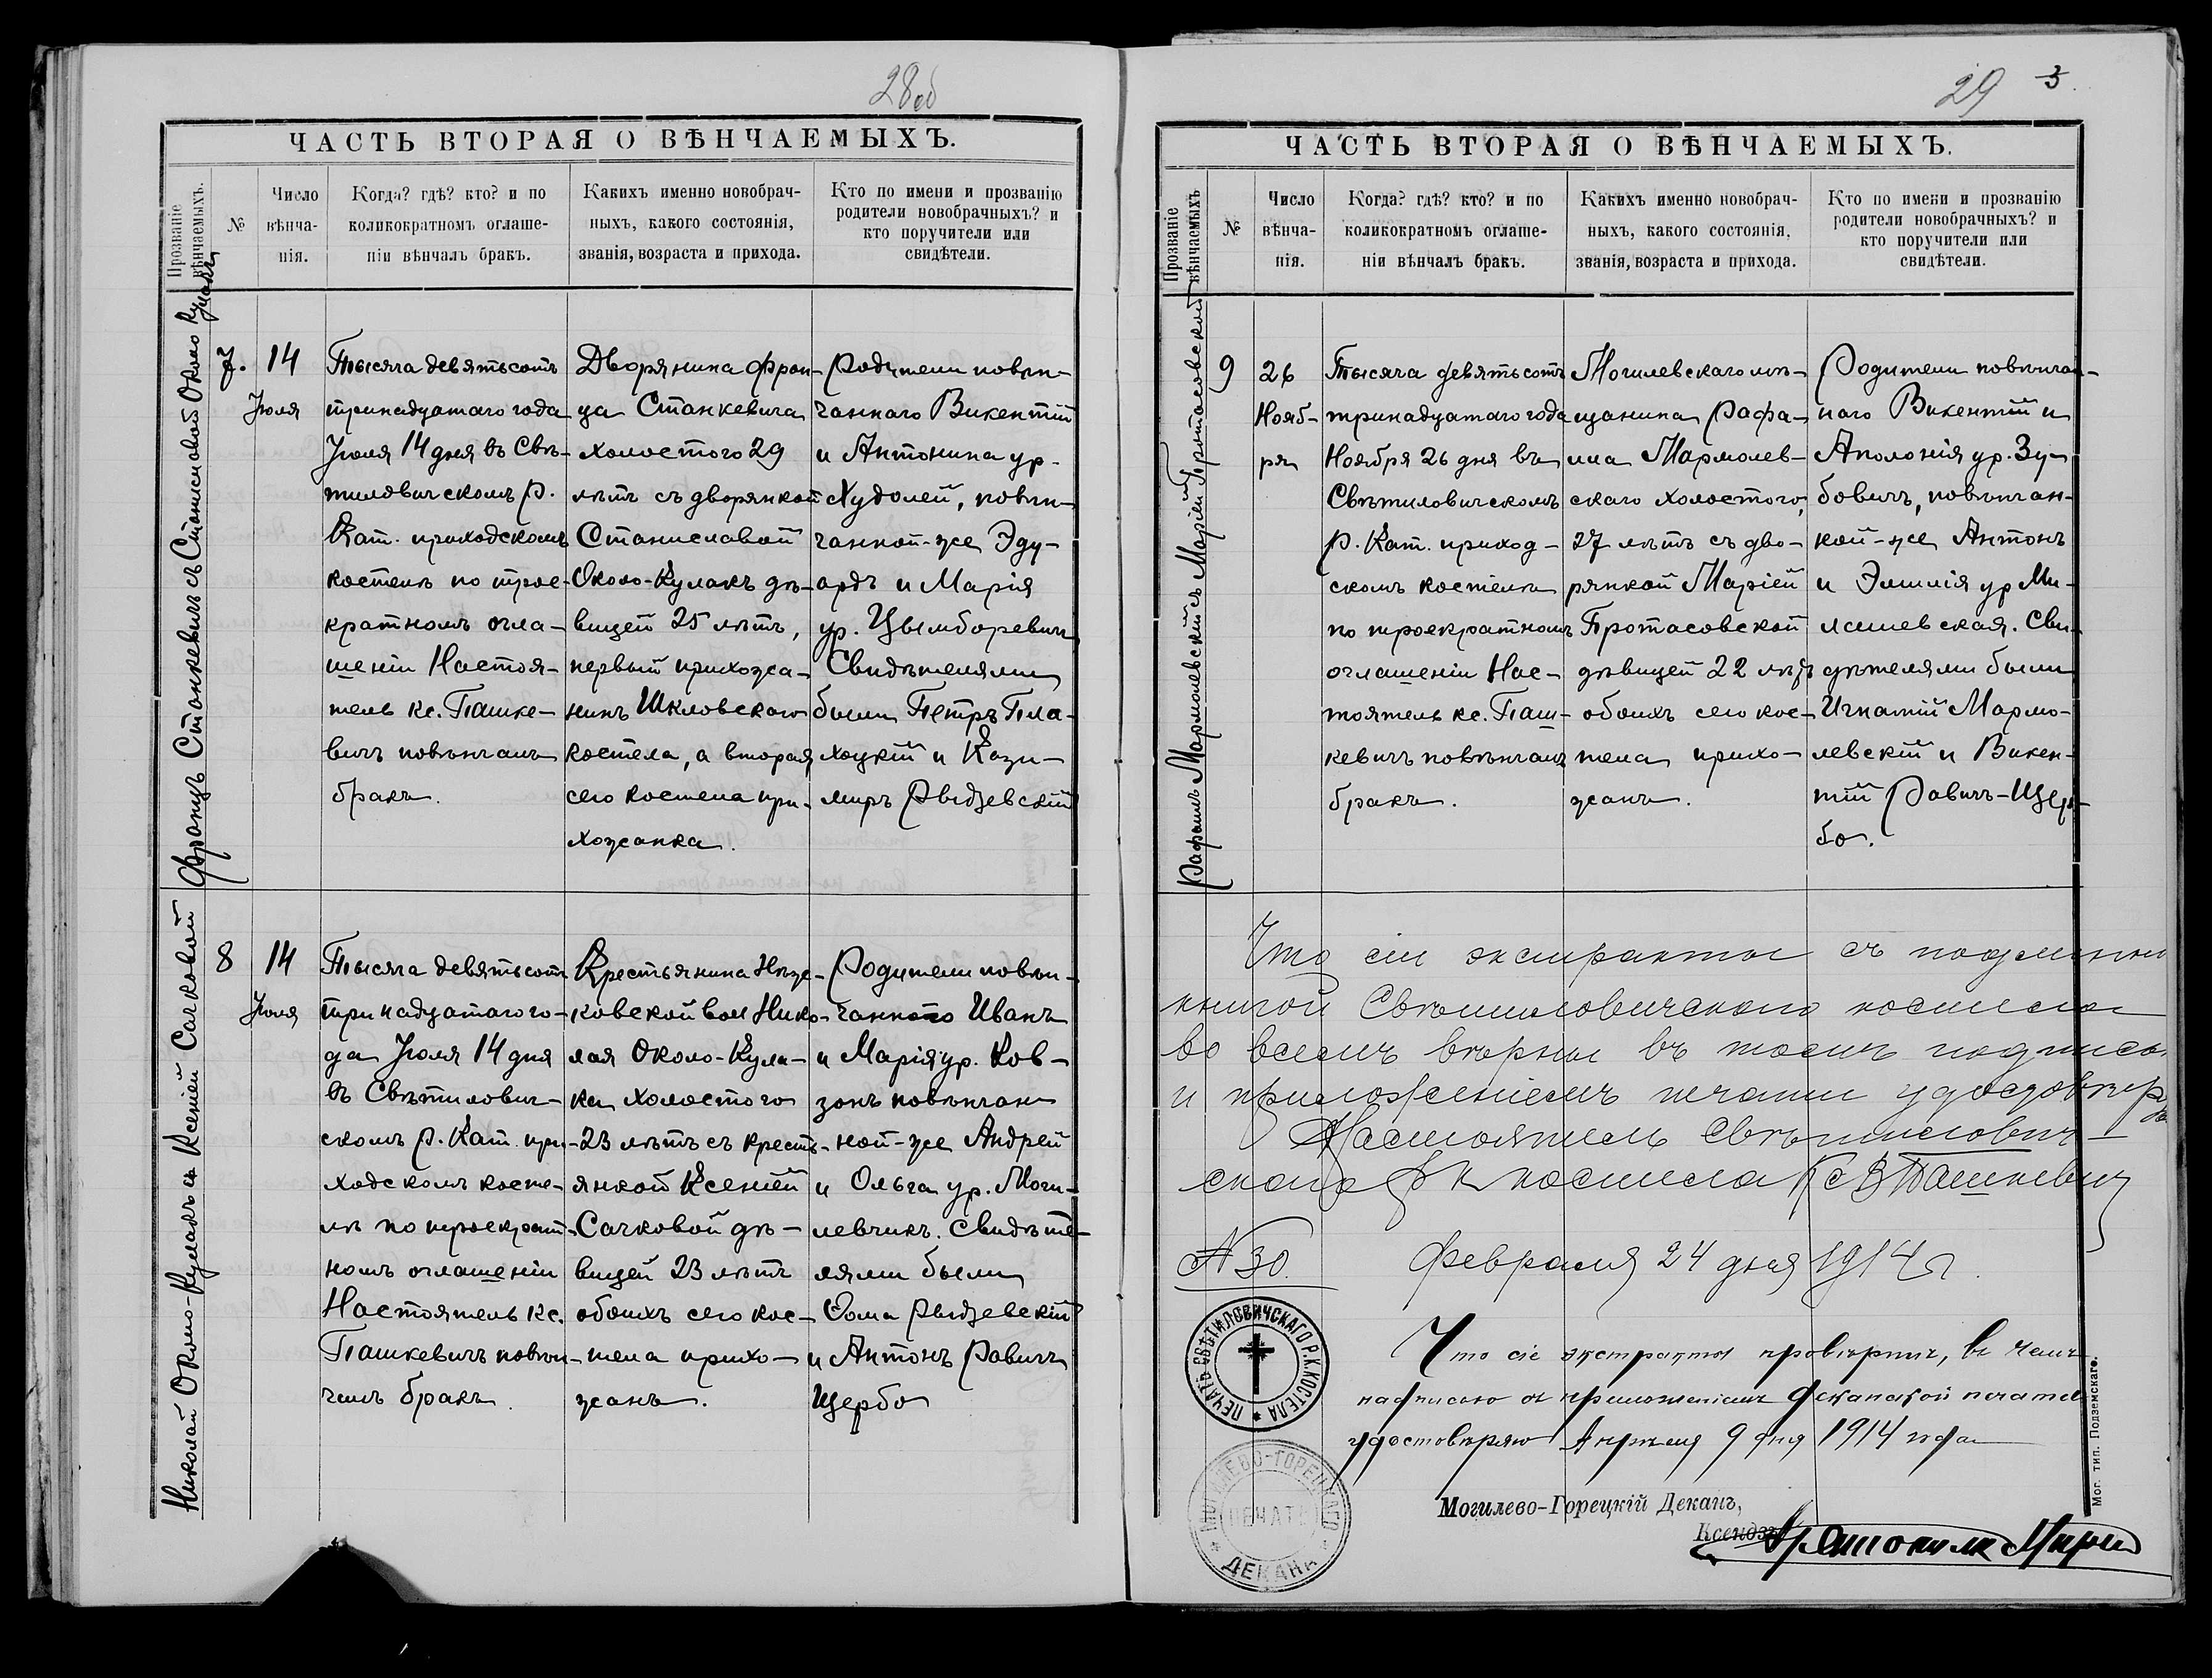 28об
ЧАСТЬ ВТОРАЯ О ВѢНЧАЕМЫХЪ.
Прозваніе вѣнчаемыхъ.
№
Число
вѣнча-
нія.
Когда? гдѣ? кто? и по
коликократномъ оглаше-
ніи вѣнчалъ бракъ.
Какихъ именно новобрач-
ныхъ, какого состоянія,
званія, возраста и прихода.
Кто по имени и прозванію
родители новобрачныхъ? и
кто поручители или
свидѣтели.
Францъ Станкевичъ съ Станиславой Около Кулакъ
7.
14
Іюля
Тысяча девятьсотъ
тринадцатаго года
Іюля 14 дня въ Свѣ-
тиловичскомъ Р.
Кат. приходскомъ
костелѣ по трое-
кратномъ огла-
шеніи Настоя-
тель кс. Пашке-
вичъ повѣнчалъ
бракъ.
Дворянина Фран-
ца Станкевича
холостого 29
лѣтъ съ дворянкой
Станиславой
Около-Кулакъ дѣ-
вицей 25 лѣтъ,
первый прихожа-
нинъ Шкловскаго
костела, а вторая
сего костела при-
хожанка.
Родители повѣн-
чаннаго Викентій
и Антонина ур.
Худолей, повѣн-
чанной-же Эду-
ардъ и Марія
ур. Цымборевичъ
Свидѣтелями
были Петръ Пла-
хоцкій и Кази-
миръ Рыдзевскій
Николай Около-Кулакъ и Ксеніей Сачковой
8
14
Іюля
Тысяча девятьсотъ
тринадцатаго го-
да Іюля 14 дня
въ Свѣтилович-
скомъ Р. Кат. при-
ходскомъ косте-
лѣ по троекрат-
номъ оглашеніи
Настоятель кс.
Пашкевичъ повѣн-
чалъ бракъ.
Крестьянина Нѣже-
ковской вол Нико-
лая Около-Кула-
ка холостого
23 лѣтъ съ кресть-
янкой Ксеніей
Сачковой дѣ-
вицей 23 лѣтъ
обоихъ сего кос-
тела прихо-
жанъ.
Родители повѣн-
чаннаго Иванъ
и Марія ур. Ков-
зонъ повѣнчан
ной-же Андрей
и Ольга ур. Моги-
левчикъ. Свидѣте-
лями были
Ѳома Рыдзевскій
и Антонъ Равичъ
Щербо
29
3.
ЧАСТЬ ВТОРАЯ О ВѢНЧАЕМЫХЪ.
Прозваніе вѣнчаемыхъ
№
Число
вѣнча-
нія.
Когда? гдѣ? кто? и по
коликократномъ оглаше-
ніи вѣнчалъ бракъ.
Какихъ именно новобрач-
ныхъ, какого состоянія,
званія, возраста и прихода.
Кто по имени и прозванію
родители новобрачныхъ? и
кто поручители или
свидѣтели.
Рафаилъ Мармолевскій съ Маріей Протасовской
9
26
Нояб-
ря
Тысяча девятьсотъ
тринадцатаго года
Ноября 26 дня въ
Свѣтиловичскомъ
Р. Кат. приход-
скомъ костелѣ
по троекратномъ
оглашеніи Нас-
тоятель кс. Паш-
кевичъ повѣнчалъ
бракъ.
Могилевскаго мѣ-
щанина Рафа-
ила Мармолев-
скаго холостого,
27 лѣтъ съ дво-
рянкой Маріей
Протасовской
дѣвицей 22 лѣтъ
обоихъ сего кос-
тела прихо-
жанъ.
Родители повѣнчан-
наго Викентій и
Аполонія ур. Зу-
бовичъ, повѣнчан-
кой-же Антонъ
и Эмилія ур Ми-
лашевская. Сви-
дѣтелями были
Игнатій Мармо-
левскій и Викен-
тій Равичъ-Щер-
бо.
Что сіи экстракты съ подлинною
книгой Свѣтиловичскаго костела
во всемъ вѣрны въ томъ подписью
и приложеніемъ печати удостовѣряю
Настоятель Свѣтилович-
скаго Р К костела Кс В Пашкевичъ
№ 30.
Февраля 24 дня 1914 г.
ПЕЧАТЬ СВѢТИЛОВИЧСКАГО Р.К. КОСТЕЛА
Что сіе экстракты провѣрилъ, въ чемъ
надписью съ приложеніемъ деканской печати
удостовѣряю Апрѣля 9 дня 1914 года
МОГИЛЕВО-ГОРЕЦКАГО ДЕКАНА
ПЕЧАТЬ
Могилево-Горецкій Деканъ,
Ксендзъ
Мог. тип. Подземскаго.